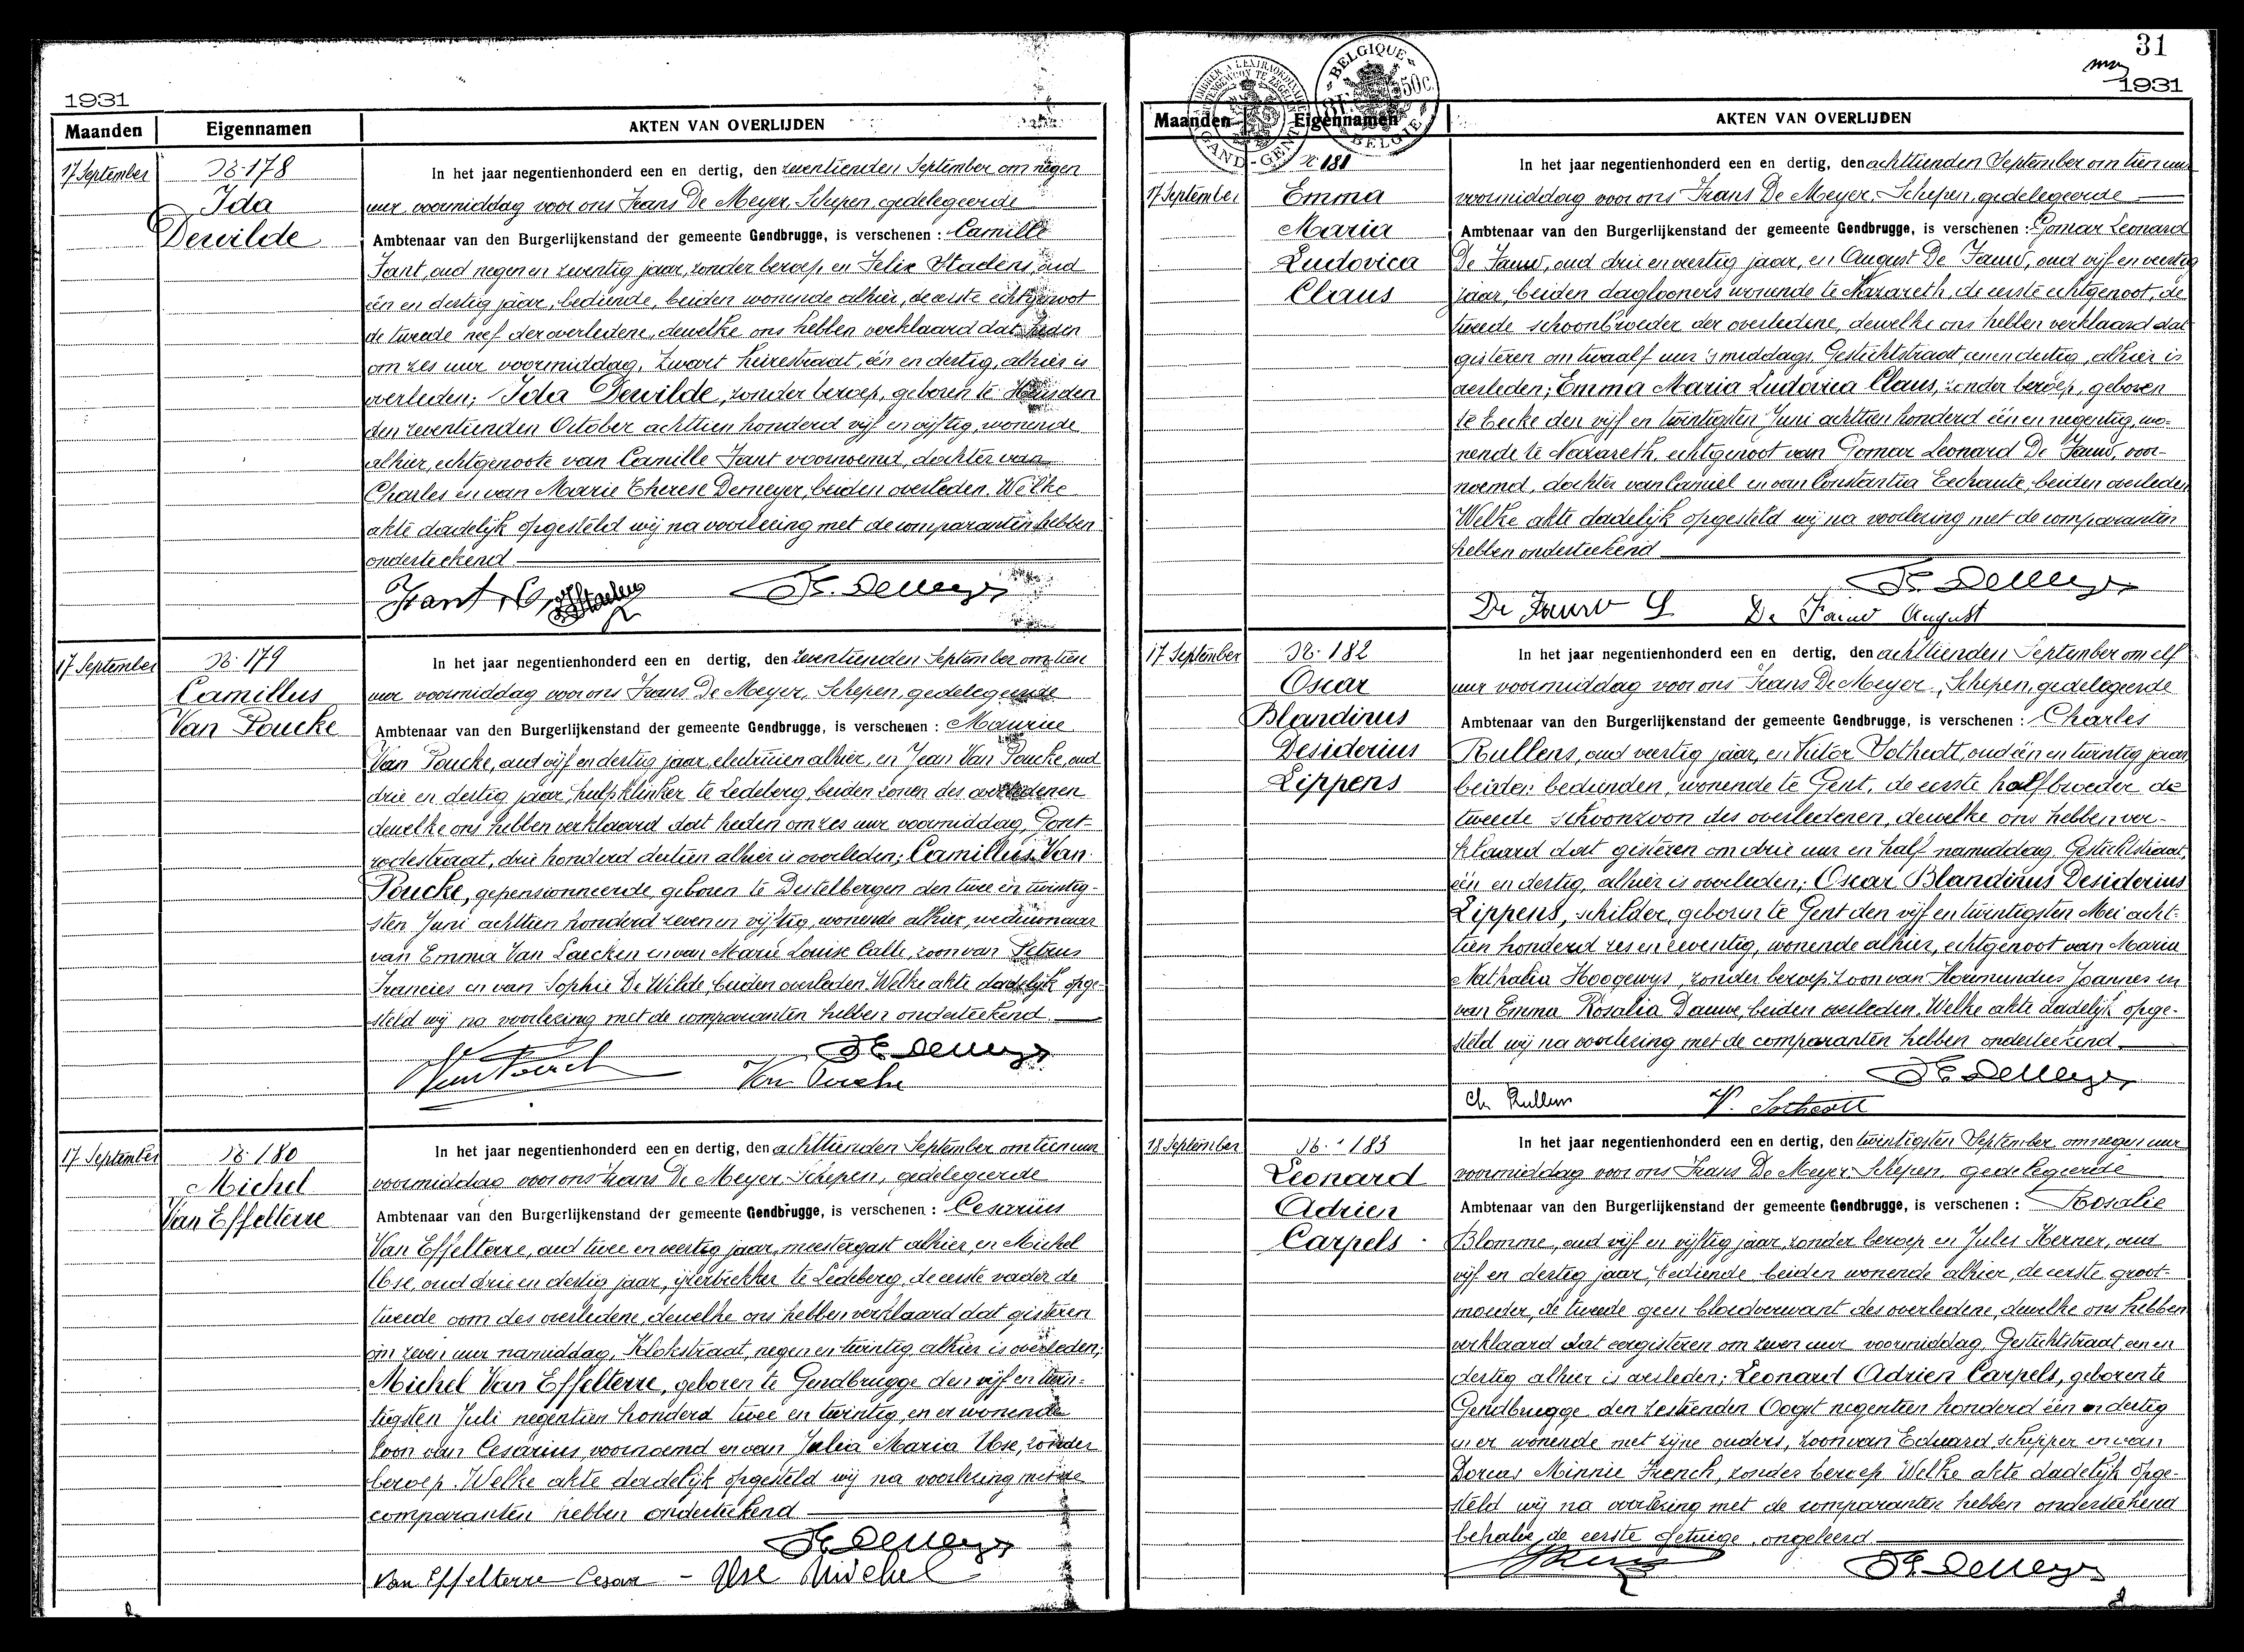 1931
Maanden Eigennamen AKTEN VAN OVERLIJDEN
17 September
N: 178
Ida
Dewilde
In het jaar negentienhonderd een en dertig, den zeventienden September om negen
uur voormiddag voor ons Frans De Meyer, Schepen, gedelegeerde
Ambtenaar van den Burgerlijkenstand der gemeente Gendbrugge, is verschenen : Camille
Fant, oud negen en zeventig jaar, zonder beroep, en Felix Staelens, oud
één en dertig jaar, bediende, beiden wonende alhier, de eerste echtgenoot
de tweede neef der overledene, dewelke ons hebben verklaard dat heden
om zes uur voormiddag, Zwart heirestraat, één en dertig, alhier is
overleden; Ida Dewilde, zonder beroep, geboren te Heusden
den zeventienden October achttien honderd vijf en vijftig, wonende
alhier, echtgenoote van Camille Fant voornoemd, dochter van
Charles en van Marie Therese Demeyer, beiden overleden. Welke
akte dadelijk opgesteld wij na voorlezing met de comparanten hebben
onderteekend
F. De Meyer
17 September
N: 179
Camillus
Van Poucke
In het jaar negentienhonderd een en dertig, den zeventienden September om tien
uur voormiddag voor ons Frans De Meyer, Schepen, gedelegeerde
Ambtenaar van den Burgerlijkenstand der gemeente Gendbrugge, is verschenen : Maurice
Van Poucke, oud vijf en dertig jaar, electricien alhier, en Jean Van Poucke, oud
drie en dertig jaar, hulpklinker te Ledeberg, beiden zonen des overledenen
dewelke ons hebben verklaard dat heden om zes uur voormiddag, Pont-
rodestraat, drie honderd dertien alhier is overleden; Camillus Van
Poucke, gepensionneerde, geboren te Destelbergen den twee en twintig-
sten Juni achttien honderd zeven en vijftig, wonende alhier, weduwnaar
van Emma Van Laecken en van Marie Louise Calle, zoon van Petrus
Francies en van Sophie De Wilde, beiden overleden. Welke akte dadelijk opge-
steld wij na voorlezing met de comparanten hebben onderteekend.
F. De Meyer
Van Poucke
17 September
N: 180
Michel
Van Effelterre
In het jaar negentienhonderd een en dertig, den achttienden September om tien uur
voormiddag voor ons Frans De Meyer, Schepen, gedelegeerde
Ambtenaar van den Burgerlijkenstand der gemeente Gendbrugge, is verschenen : Cesarius
Van Effelterre, oud twee en veertig jaar, meestergast alhier, en Michel
Use, oud drie en dertig jaar, ijzertrekker te Ledeberg, de eerste vader de
tweede oom des overledene, dewelke ons hebben verklaard dat gisteren
om zeven uur namiddag, Klokstraat, negen en twintig, alhier is overleden;
Michel Van Effelterre, geboren te Gendbrugge den vijf en twin-
tigsten Juli negentien honderd twee en twintig, en er wonende
zoon van Cesarius, voornoemd en van Julia Maria Use, zonder
beroep. Welke akte dadelijk opgesteld wij na voorlezing met de
comparanten hebben onderteekend
F. De Meyer
Van Effelterre Cesar - Use Michel
31
1931
GAND-GENT
BELGIQUE
50c.
BELGIE
Maanden Eigennamen AKTEN VAN OVERLIJDEN
17 September
N: 181
Emma
Maria
Ludovica
Claus
In het jaar negentienhonderd een en dertig, den achttienden September om tien uur
voormiddag voor ons Frans De Meyer, Schepen, gedelegeerde
Ambtenaar van den Burgerlijkenstand der gemeente Gendbrugge, is verschenen : Gomar Leonard
De Fauw, oud drie en veertig jaar, en August De Fauw, oud vijf en veertig
jaar, beiden daglooners wonende te Nazareth, de eerste echtgenoot, de
tweede schoonbroeder der overledene, dewelke ons hebben verklaard dat
gisteren om twaalf uur 's middags, Gestichtstraat, een en dertig, alhier is
overleden; Emma Maria Ludovica Claus, zonder beroep, geboren
te Eecke den vijf en twintigsten Juni achttien honderd één en negentig, wo-
nende te Nazareth, echtgenoot van Gomar Leonard De Fauw, voor-
noemd, dochter van Camiel en van Constantia Eechaute, beiden overleden
Welke akte dadelijk opgesteld wij na voorlezing met de comparanten
hebben onderteekend
F. De Meyer
De Fauw G. De Fauw August
17 September
N: 182
Oscar
Blandinus
Desiderius
Lippens
In het jaar negentienhonderd een en dertig, den achttienden September om elf
uur voormiddag voor ons Frans De Meyer, Schepen, gedelegeerde
Ambtenaar van den Burgerlijkenstand der gemeente Gendbrugge, is verschenen : Charles
Rullens, oud veertig jaar, en Victor Sotheatt, oud één en twintig jaar
beiden bedienden, wonende te Gent, de eerste halfbroeder de
tweede schoonzoon des overledenen, dewelke ons hebben ver-
klaard dat gisteren om drie uur en half namiddag, Gestichtstraat,
één en dertig, alhier is overleden; Oscar Blandinus Desiderius
Lippens, schilder, geboren te Gent den vijf en twintigsten Mei acht-
tien honderd zes en zeventig, wonende alhier, echtgenoot van Maria
Nathalia Hoogewys, zonder beroep, zoon van Hormundus Joannes en
van Emma Rosalia Dauwe, beiden overleden. Welke akte dadelijk opge-
steld wij na voorlezing met de comparanten hebben onderteekend.
F. De Meyer
Ch Rullens V. Sotheatt
18 September
N: 183
Leonard
Adrien
Carpels
In het jaar negentienhonderd een en dertig, den twintigsten September om negen uur
voormiddag voor ons Frans De Meyer, Schepen, gedelegeerde
Ambtenaar van den Burgerlijkenstand der gemeente Gendbrugge, is verschenen : Rosalie
Blomme, oud vijf en vijftig jaar, zonder beroep en Jules Kerner, oud
vijf en dertig jaar, bediende, beiden wonende alhier, de eerste groot-
moeder, de tweede geen bloedverwant des overledene, dewelke ons hebben
verklaard dat eergisteren om zeven uur voormiddag, Gestichtstraat een en
dertig alhier is overleden; Leonard Adrien Carpels, geboren te
Gendbrugge den zestienden Oogst negentien honderd één en dertig
en er wonende met zijne ouders, zoon van Eduard, schipper en van
Dorcas Minnie French, zonder beroep. Welke akte dadelijk opge-
steld wij na voorlezing met de comparanten hebben onderteekend
behalve de eerste getuige, ongeleerd
F. De Meyer